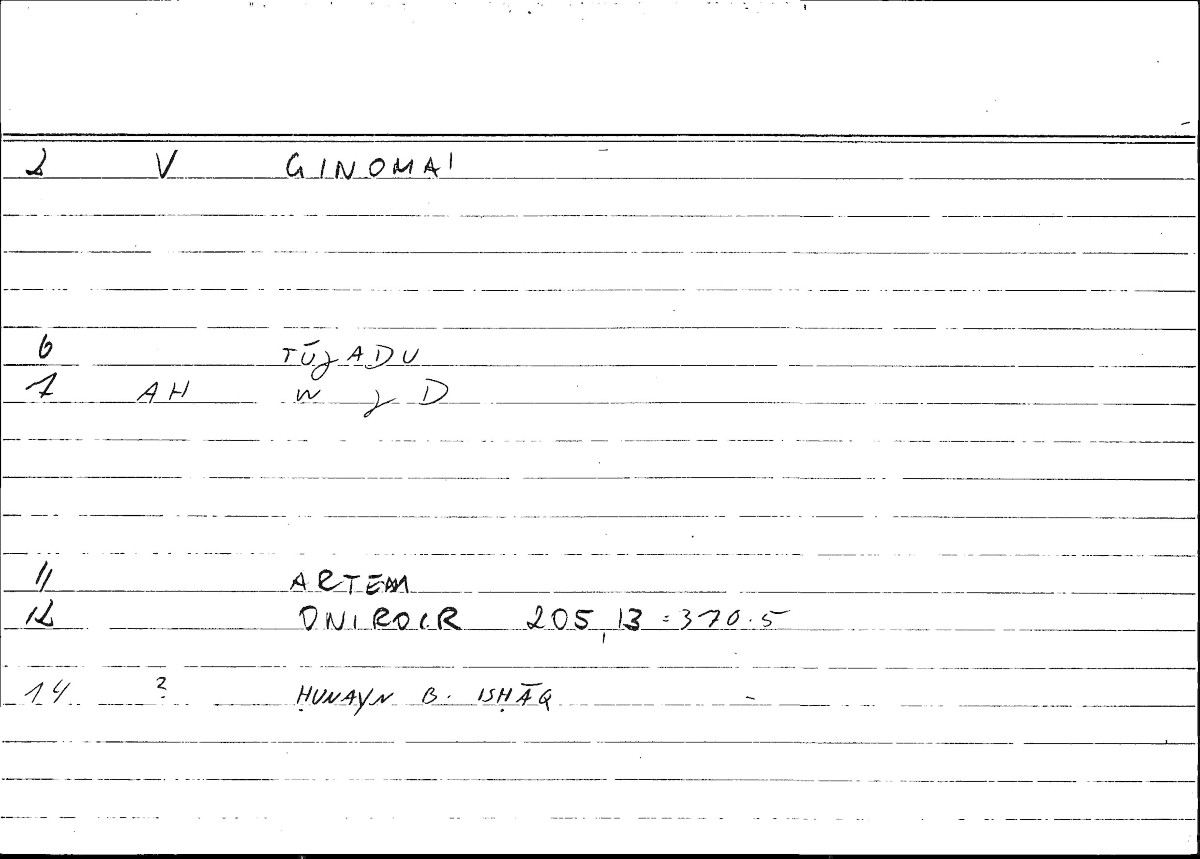 2 V GINOMAI
6 TŪǧADU
7 AH W ǧ D
11 ARTEM
12 ONIROCR 205,13 = 370.5
14 ? ḤUNAYN B. ISḤĀQ